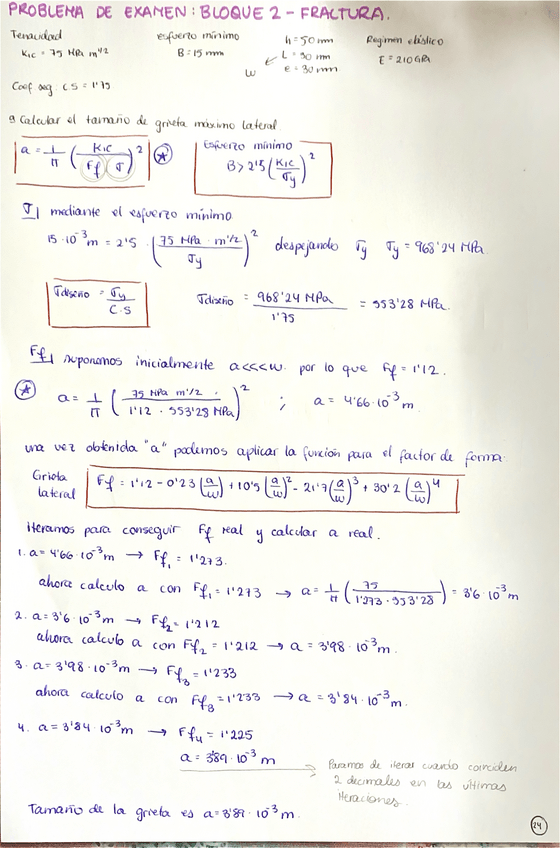 PROBLEMA DE EXAMEN: BLOQUE 2 - FRACTURA.
Tenacidad esfuerzo mínimo h = 50 mm Regimen elástico
KIC = 75 MPa m^1/2 B = 15 mm L = 90 mm E = 210 GPa
w e = 30 mm
Coef seg: CS = 1'75
a Calcular el tamaño de grieta máximo lateral.
a = 1/π (KIC / Ff σ)^2 (A) Esfuerzo mínimo
B > 2'5 (KIC/σy)^2
σ| mediante el esfuerzo mínimo.
15·10^-3 m = 2'5 · (75 MPa · m^1/2 / σy)^2 despejando σy σy = 968'24 MPa.
σdiseño = σy / C.S σdiseño = 968'24 MPa / 1'75 = 553'28 MPa.
Ff| suponemos inicialmente a<<<w. por lo que Ff = 1'12.
(A) a = 1/π (75 MPa m^1/2 / 1'12 · 553'28 MPa)^2 ; a = 4'66·10^-3 m.
una vez obtenida "a" podemos aplicar la función para el factor de forma:
Grieta lateral Ff = 1'12 - 0'23 (a/w) + 10'5 (a/w)^2 - 21'7 (a/w)^3 + 30'2 (a/w)^4
Iteramos para conseguir Ff real y calcular a real.
1. a = 4'66·10^-3 m → Ff1 = 1'273.
ahora calculo a con Ff1 = 1'273 → a = 1/π (75 / 1'273 · 553'28) = 3'6·10^-3 m
2. a = 3'6·10^-3 m → Ff2 = 1'212
ahora calculo a con Ff2 = 1'212 → a = 3'98·10^-3 m.
3. a = 3'98·10^-3 m → Ff3 = 1'233
ahora calculo a con Ff3 = 1'233 → a = 3'84·10^-3 m.
4. a = 3'84·10^-3 m → Ff4 = 1'225
a = 3'89·10^-3 m → Paramos de iterar cuando coinciden
2 decimales en las últimas
iteraciones.
Tamaño de la grieta es a = 3'89·10^-3 m.
24